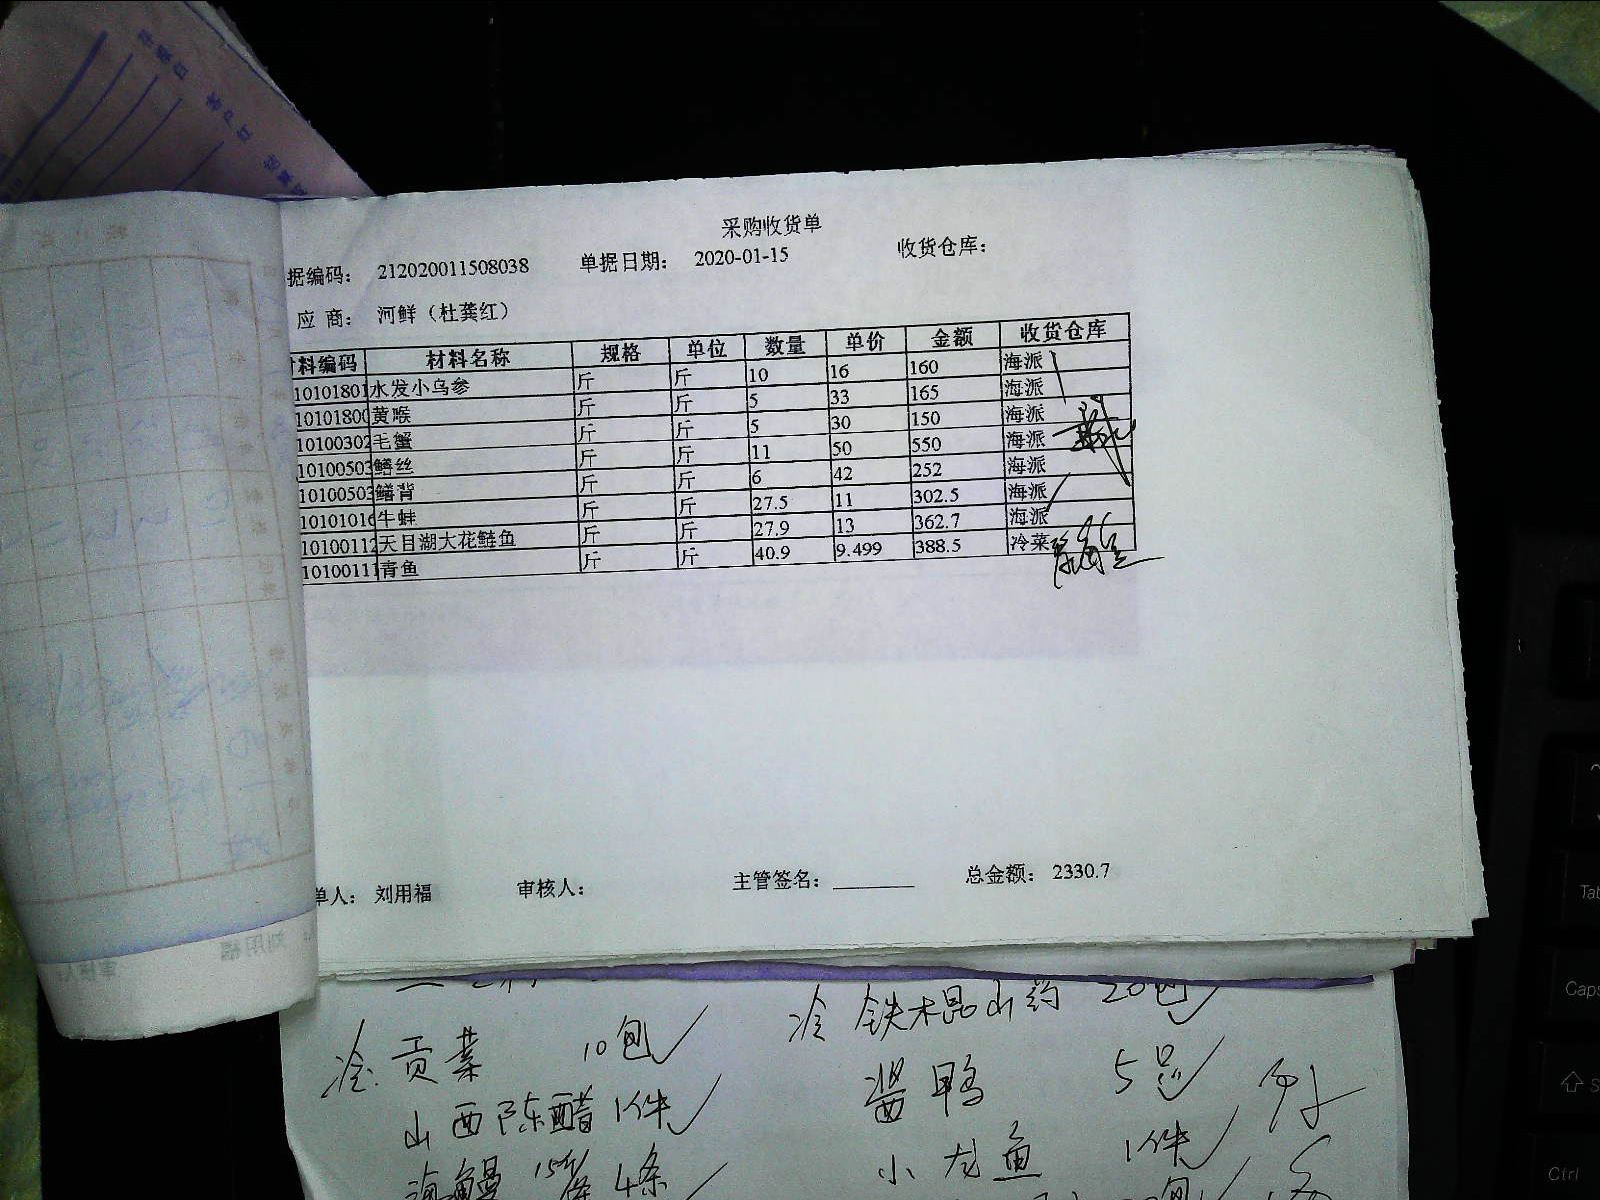 采购收货单
据编码： 212020011508038 单据日期： 2020-01-15 收货仓库：
应 商： 河鲜（杜龚红）
料编码 材料名称 规格 单位 数量 单价 金额 收货仓库
10101801 水发小乌参 斤 斤 10 16 160 海派
10101800 黄喉 斤 斤 5 33 165 海派
10100302 毛蟹 斤 斤 5 30 150 海派
10100503 鳝丝 斤 斤 11 50 550 海派
10100503 鳝背 斤 斤 6 42 252 海派
10101016 牛蛙 斤 斤 27.5 11 302.5 海派
10100112 天目湖大花鲢鱼 斤 斤 27.9 13 362.7 海派
10100111 青鱼 斤 斤 40.9 9.499 388.5 冷菜
单人： 刘用福 审核人： 主管签名： 总金额： 2330.7
冷 铁木棍山药 20包
冷 贡菜 10包
酱鸭 5只
山西陈醋 1件
小龙鱼 1件
海鳗 4条
Tab
Caps
Ctrl